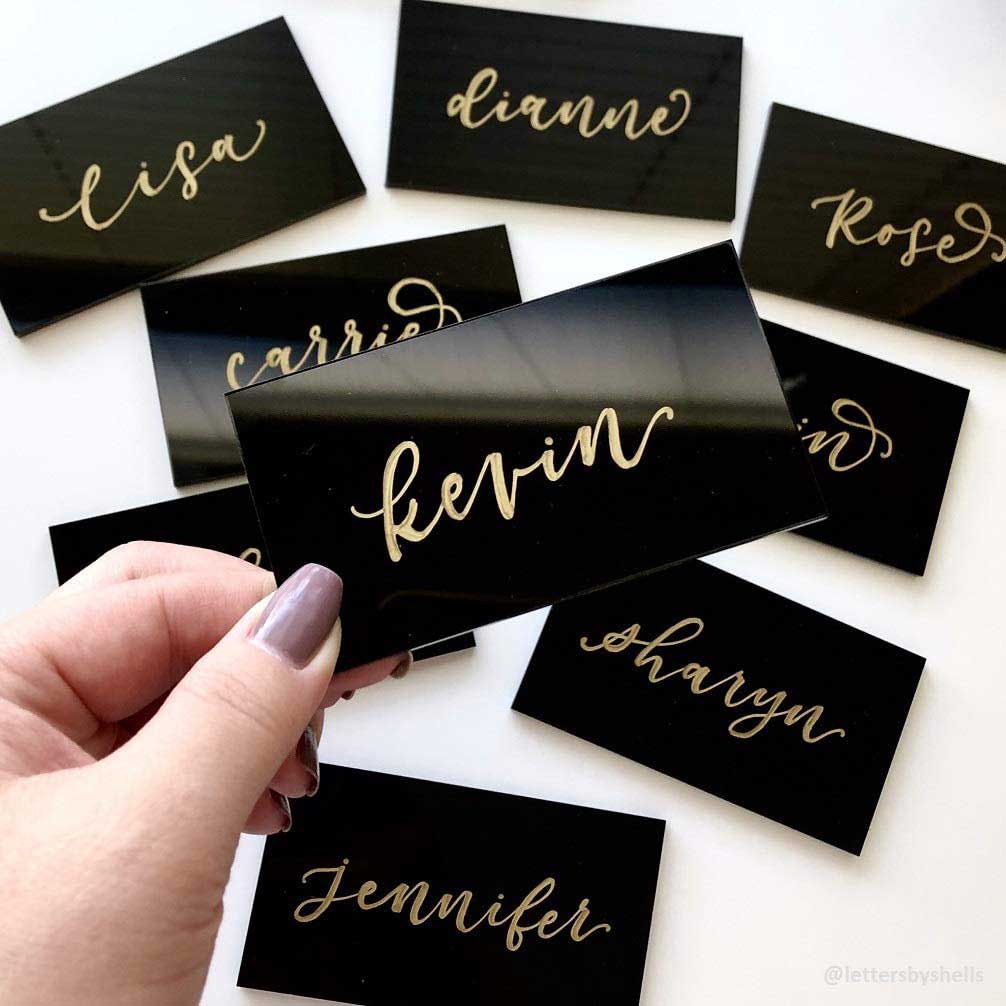 lisa
dianne
Rose
carrie
kevin
sharyn
jennifer
@lettersbyshells